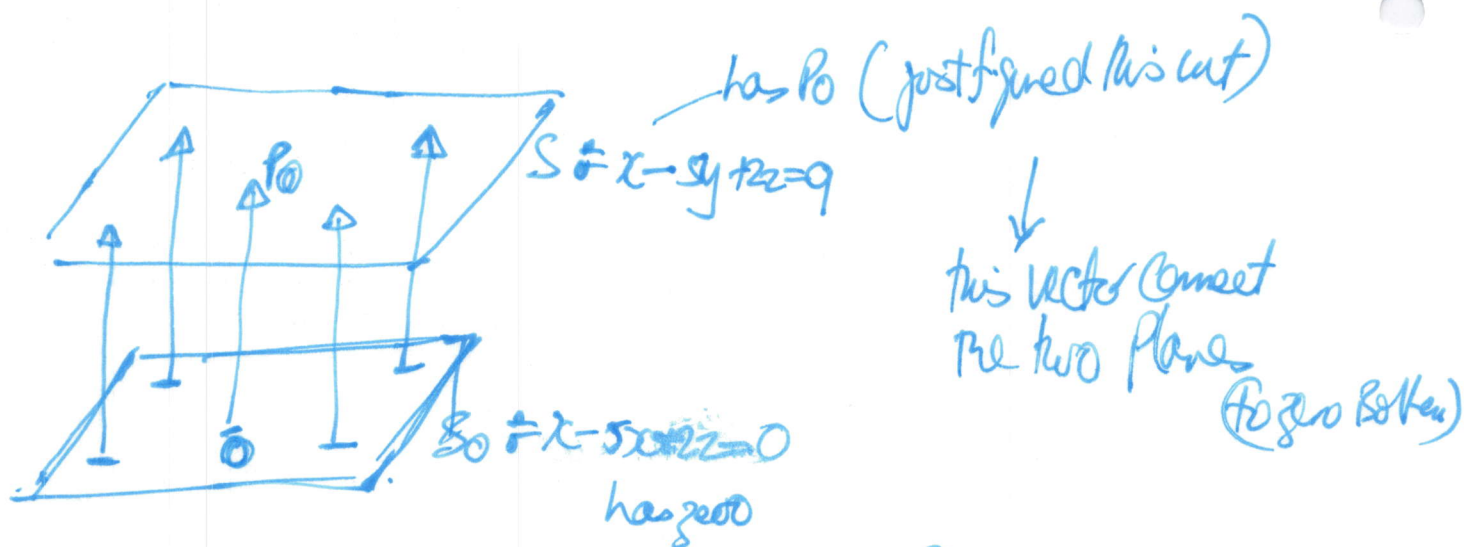 has P₀ (just figured this out)
S : x - 5y + 2z = 9
P₀
this vector connect
the two planes
(to zero Bottem)
0̄
S₀ : x - 5x + 2z = 0
has zero